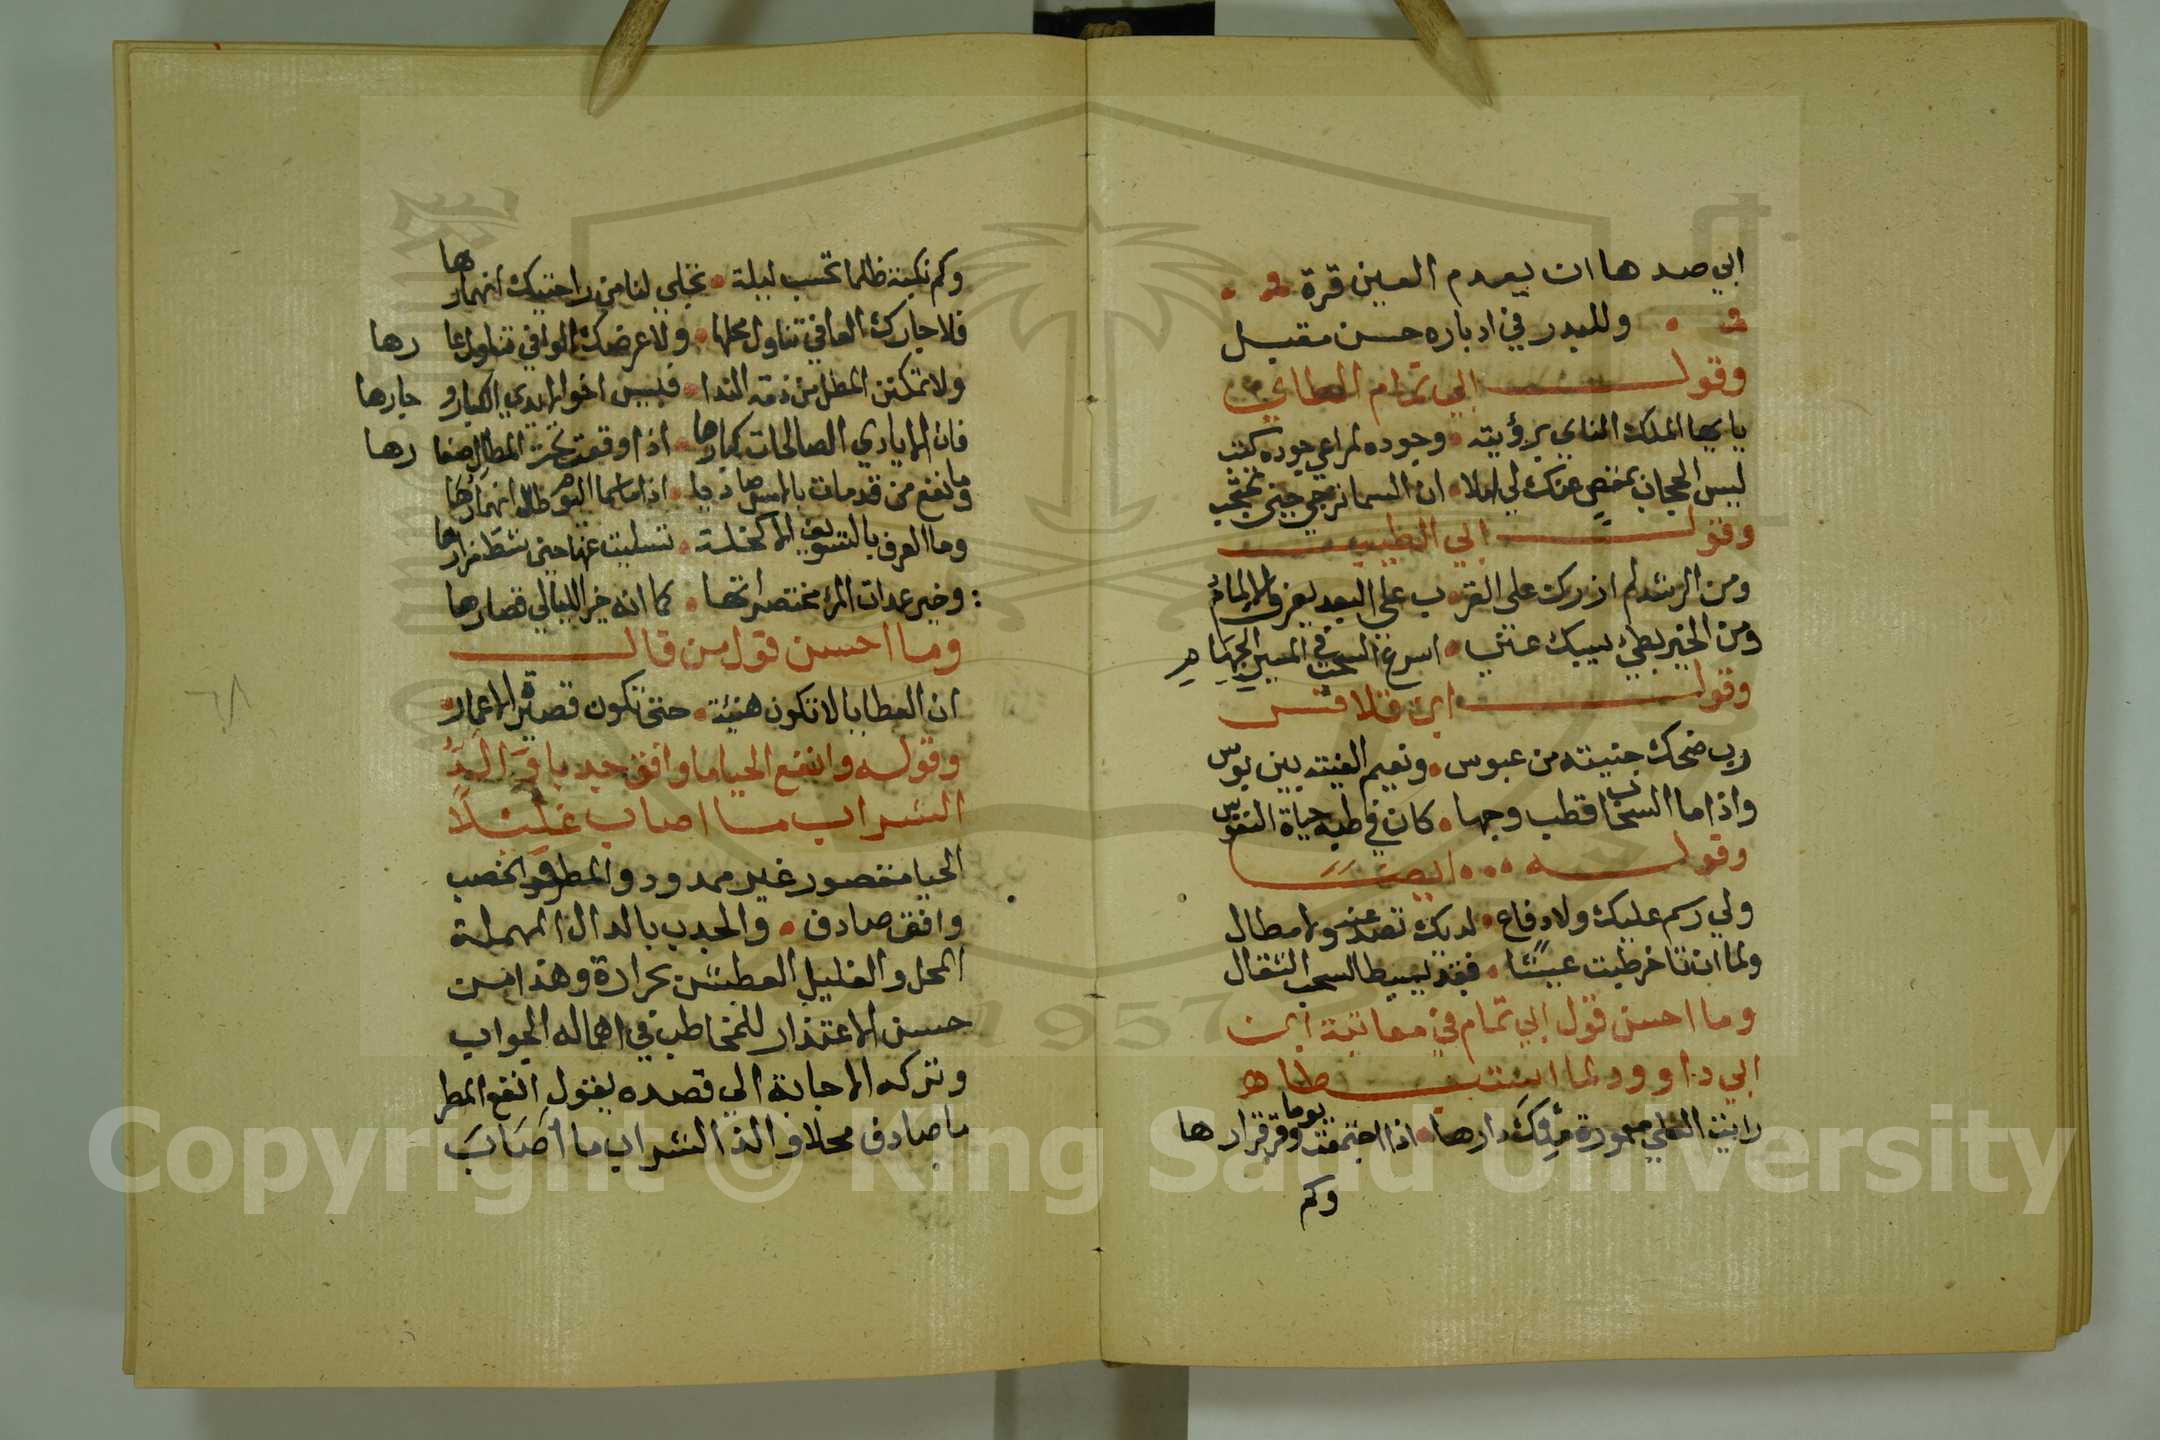 ابي صدها ان يعدم العين قرة
وللبدر في ادباره حسن مقبل
وقول ابي تمام الطائي
يا ايها الملك النائي برؤيته وجوده لمراعي جوده كثب
ليس الحجاب بمقص عنك لي املا ان السما ترجي حين تحتجب
وقول ابي الطيب
ومن الرشد لم ازرك على القرب على البعد يعرف الالمام
ومن الخير بطئ سيبك عني اسرع السحب في المسير الجهام
وقول ابن قلاقس
رب ضحك جنيته من عبوس ونعيم الفيته بين بوس
واذا ما السحاب قطب وجها كان في طيه حياة النفوس
وقوله ايضا
ولي رسم عليك ولا دفاع لديك تصد عنه ولا مطال
ولما ان تاخر طبت عيشا فقد تبيط السحب الثقال
وما احسن قول ابي تمام في معاتبة ابن
ابي داوود لما استبطاه
رايت العلي معمورة منك دارها اذا اجتمعت يوما وقر قرارها
وكم
وكم نكبة ظلما تحسب ليلة تجلي لنا من راحتيك انهارها
فلا جارك العافي تناول محلها ولا عرضك الوافي تناول عارها
ولا تمكنن المطل من ذمة الندا فبيس اخو الايدي الكبار وجارها
فان الايادي الصالحات كبارها اذا وقعت تحت المطال صغارها
وما نفع من قد مات بالامس صاديا اذا ما سما اليوم طال انهمارها
وما العرف بالتسويف الا كخلة تسليت عنها حين شط مزارها
وخير عدات المرء مختصراتها كما انه خير الليالي قصارها
وما احسن قول من قال
ان العطايا لا تكون هنيئة حتى تكون قصيرة الاعمار
وقوله وانفع الحيا ما وافق جدبا والذ
الشراب ما اصاب غليلا
الحيا مقصور غير ممدود والمطر والخصب
وافق صادف والجدب بالدال المهملة
المحل والغليل العطش بحرارة وهذا من
حسن الاعتذار للمخاطب في اهماله الجواب
وتركه الاجابة الى قصده يقول انفع المطر
ما صادف محلا والذ الشراب ما اصاب
٦٨
Copyright © King Saud University
1957